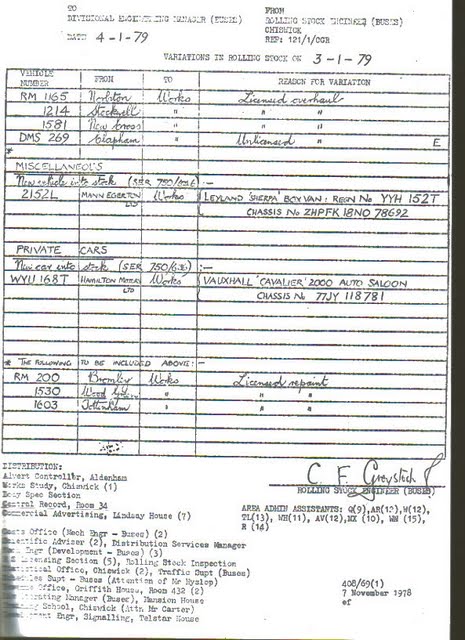 TO
DIVISIONAL ENGINEERING MANAGER (BUSES)
DATE 4-1-79
FROM
ROLLING STOCK ENGINEER (BUSES)
CHISWICK
REF: 121/1/OGR
VARIATIONS IN ROLLING STOCK ON 3-1-79
VEHICLE NUMBER FROM TO REASON FOR VARIATION
RM 1165 Norbiton Works Licensed overhaul
1214 Stockwell " " "
1581 New Cross " " "
DMS 269 Clapham " Unlicensed E
*
MISCELLANEOUS
New vehicle into stock (SER 750/ :—
2152L MANN EGERTON LTD Works LEYLAND 'SHERPA' BOX VAN: REGN No YYH 152T
CHASSIS No ZHPFK 18NO 78692
PRIVATE CARS
New car into stock (SER 750/ :—
WYU 168T HAMILTON MOTORS LTD Works VAUXHALL 'CAVALIER' 2000 AUTO SALOON
CHASSIS No 77JY 118781
* THE FOLLOWING TO BE INCLUDED ABOVE:—
RM 200 Bromley Works Licensed repaint
1530 Wood Green " " "
1603 Tottenham " " "
C. F. Greystock
ROLLING STOCK ENGINEER (BUSES)
DISTRIBUTION:
Advert Controller, Aldenham
Works Study, Chiswick (1)
Body Spec Section
Central Record, Room 34
Commercial Advertising, Lindsay House (7)
Costs Office (Mech Engr - Buses) (2)
Scientific Adviser (2), Distribution Services Manager
Engr (Development - Buses) (3)
Licensing Section (5), Rolling Stock Inspection
Statistical Office, Chiswick (2), Traffic Supt (Buses)
Schedules Supt - Buses (Attention of Mr Hyslop)
Office, Griffith House, Room 432 (2)
Operating Manager (Buses), Mansion House
Training School, Chiswick (Attn Mr Carter)
Engr, Signalling, Telstar House
AREA ADMIN ASSISTANTS: Q(9),AR(10),W(12),
TL(13), MH(11), AV(12),HX (10), WW (15),
R (14)
408/69(1)
7 November 1978
ef